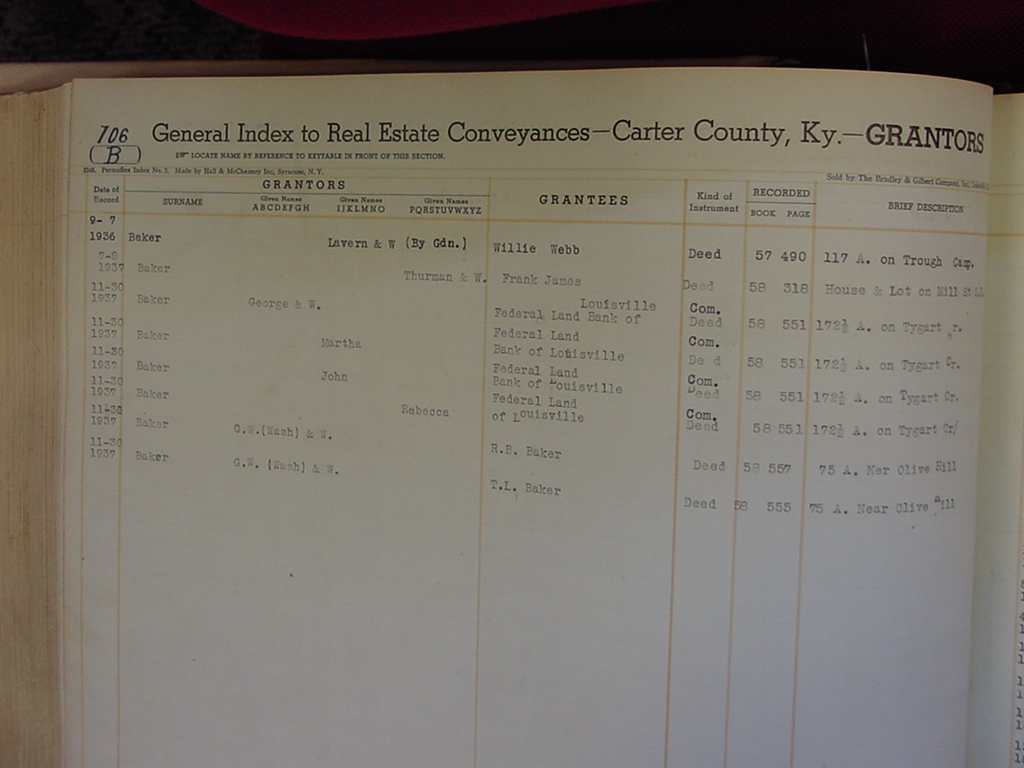 106
(B)
General Index to Real Estate Conveyances—Carter County, Ky.—GRANTORS
LOCATE NAME BY REFERENCE TO KEYTABLE IN FRONT OF THIS SECTION.
Permaflex Index No. 1. Made by Hall & McChesney Inc, Syracuse, N. Y.
Sold by The Bradley & Gilbert Company, Inc.
Date of Record
GRANTORS
SURNAME
Given Names ABCDEFGH
Given Names IJKLMNO
Given Names PQRSTUVWXYZ
GRANTEES
Kind of Instrument
RECORDED
BOOK PAGE
BRIEF DESCRIPTION
9- 7
1936 Baker Lavern & W (By Gdn.) Willie Webb Deed 57 490 117 A. on Trough Camp.
7-8
1937 Baker Thurman & W. Frank James Deed 58 318 House & Lot on Mill St
11-30 Louisville Com.
1937 Baker George & W. Federal Land Bank of Deed 58 551 172½ A. on Tygart r.
11-30 Federal Land Com.
1937 Baker Martha Bank of Louisville De d 58 551 172½ A. on Tygart Cr.
11-30 Federal Land Com.
1937 Baker John Bank of Louisville Deed 58 551 172½ A. on Tygart Cr.
11-30 Federal Land Com.
1937 Baker Rebecca of Louisville Deed 58 551 172½ A. on Tygart Cr/
11-30
1937 Baker G.W.(Wash) & W. R.B. Baker Deed 58 557 75 A. Ner Olive Hill
11-30
1937 Baker G.W. (Wash) & W. T.L. Baker Deed 58 555 75 A. Near Olive Hill